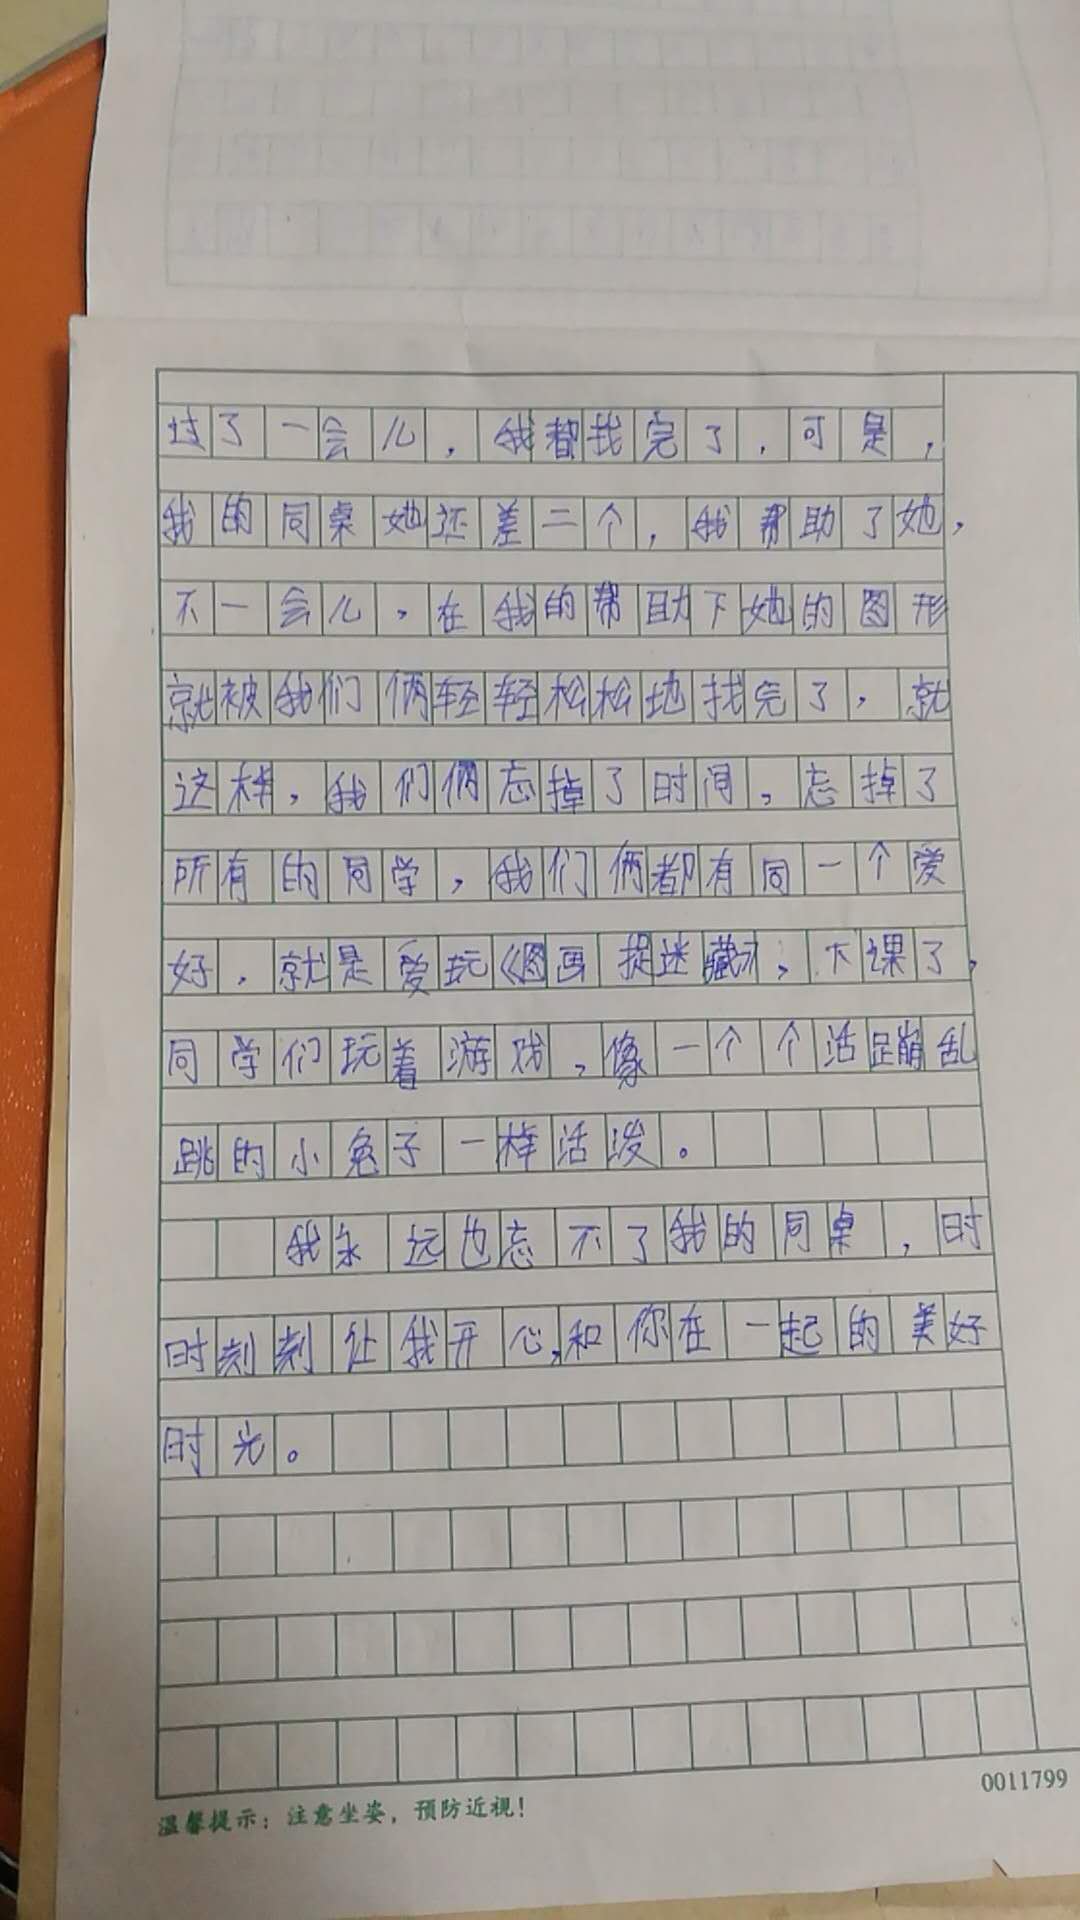 过了一会儿，我都找完了，可是，
我的同桌她还差二个，我帮助了她，
不一会儿，在我的帮助下她的图形
就被我们俩轻轻松松地找完了，就
这样，我们俩忘掉了时间，忘掉了
所有的同学，我们俩都有同一个爱
好，就是爱玩《图画捉迷藏》，下课了，
同学们玩着游戏，像一个个活蹦乱
跳的小兔子一样活泼。
我永远也忘不了我的同桌，时
时刻刻让我开心，和你在一起的美好
时光。
0011799
温馨提示：注意坐姿，预防近视！